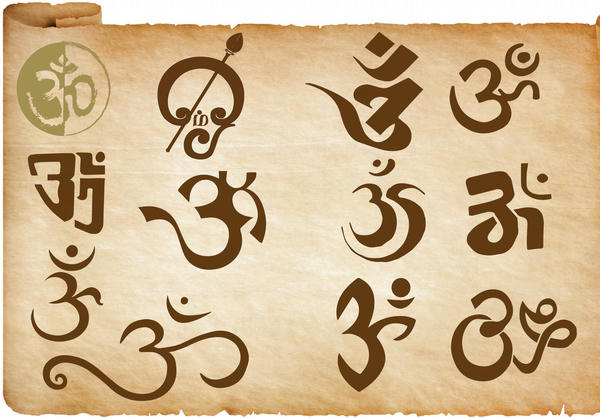 ॐ ஓம் ॐ ॐ
ॐ ॐ ॐ ॐ
ॐ ॐ ॐ ॐ